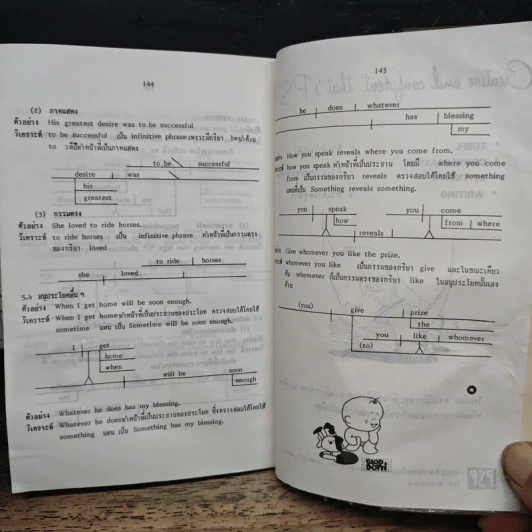 144
(2) ภาคแสดง
ตัวอย่าง His greatest desire was to be successful
วิเคราะห์ to be successful เป็น infinitive phrase เพราะมีกริยา be นำด้วย
to วลีนี้ทำหน้าที่เป็นภาคแสดง
to be successful
desire was
his
greatest
(3) กรรมตรง
ตัวอย่าง She loved to ride horses.
วิเคราะห์ to ride horses เป็น infinitive phrase ทำหน้าที่เป็นกรรมตรง
ของกริยา loved
to ride horses
she loved
5.4 อนุประโยคอื่น ๆ
ตัวอย่าง When I get home will be soon enough.
วิเคราะห์ When I get home ทำหน้าที่เป็นประธานของประโยค ตรวจสอบได้โดยใช้
sometime แทน เป็น Sometime will be soon enough.
I get
home
when
will be soon
enough
ตัวอย่าง Whatever he does has my blessing.
วิเคราะห์ Whatever he does ทำหน้าที่เป็นประธานของประโยค ซึ่งตรวจสอบได้โดยใช้
something แทน เป็น Something has my blessing.
145
he does whatever
has blessing
my
How you speak reveals where you come from.
how you speak ทำหน้าที่เป็นประธาน โดยมี where you come
from เป็นกรรมของกริยา reveals ตรวจสอบได้โดยใช้ something
แทนที่เป็น Something reveals something.
you speak you come
how from where
reveals
Give whomever you like the prize.
whomever you like เป็นกรรมของกริยา give และในขณะเดียว
กัน whomever ก็เป็นกรรมตรงของกริยา like ในอนุประโยคนั้นเอง
ด้วย
(you) give prize
the
you like whomever
(to)